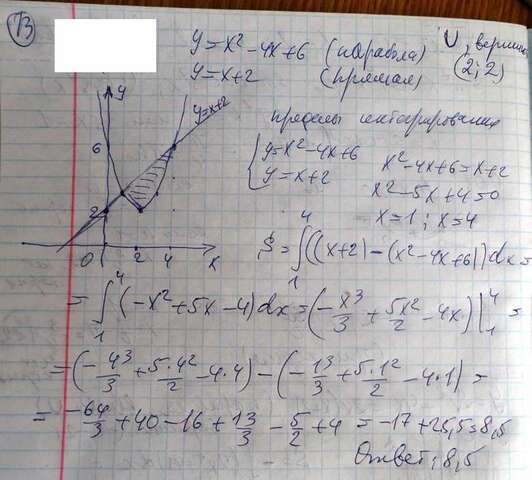 73
y = x² - 4x + 6 (парабола) U, вершина (2; 2)
y = x + 2 (прямая)
пределы интегрирования
{ y = x² - 4x + 6
y = x + 2
x² - 4x + 6 = x + 2
x² - 5x + 4 = 0
x = 1; x = 4
y
y = x + 2
6
2
0 2 4 x
S = ∫₁⁴ ((x+2) - (x² - 4x + 6)) dx =
= ∫₁⁴ (-x² + 5x - 4) dx = (-x³/3 + 5x²/2 - 4x) |₁⁴ =
= (-4³/3 + 5·4²/2 - 4·4) - (-1³/3 + 5·1²/2 - 4·1) =
= -64/3 + 40 - 16 + 13/3 - 5/2 + 4 = -17 + 25,5 = 8,5
Ответ: 8,5